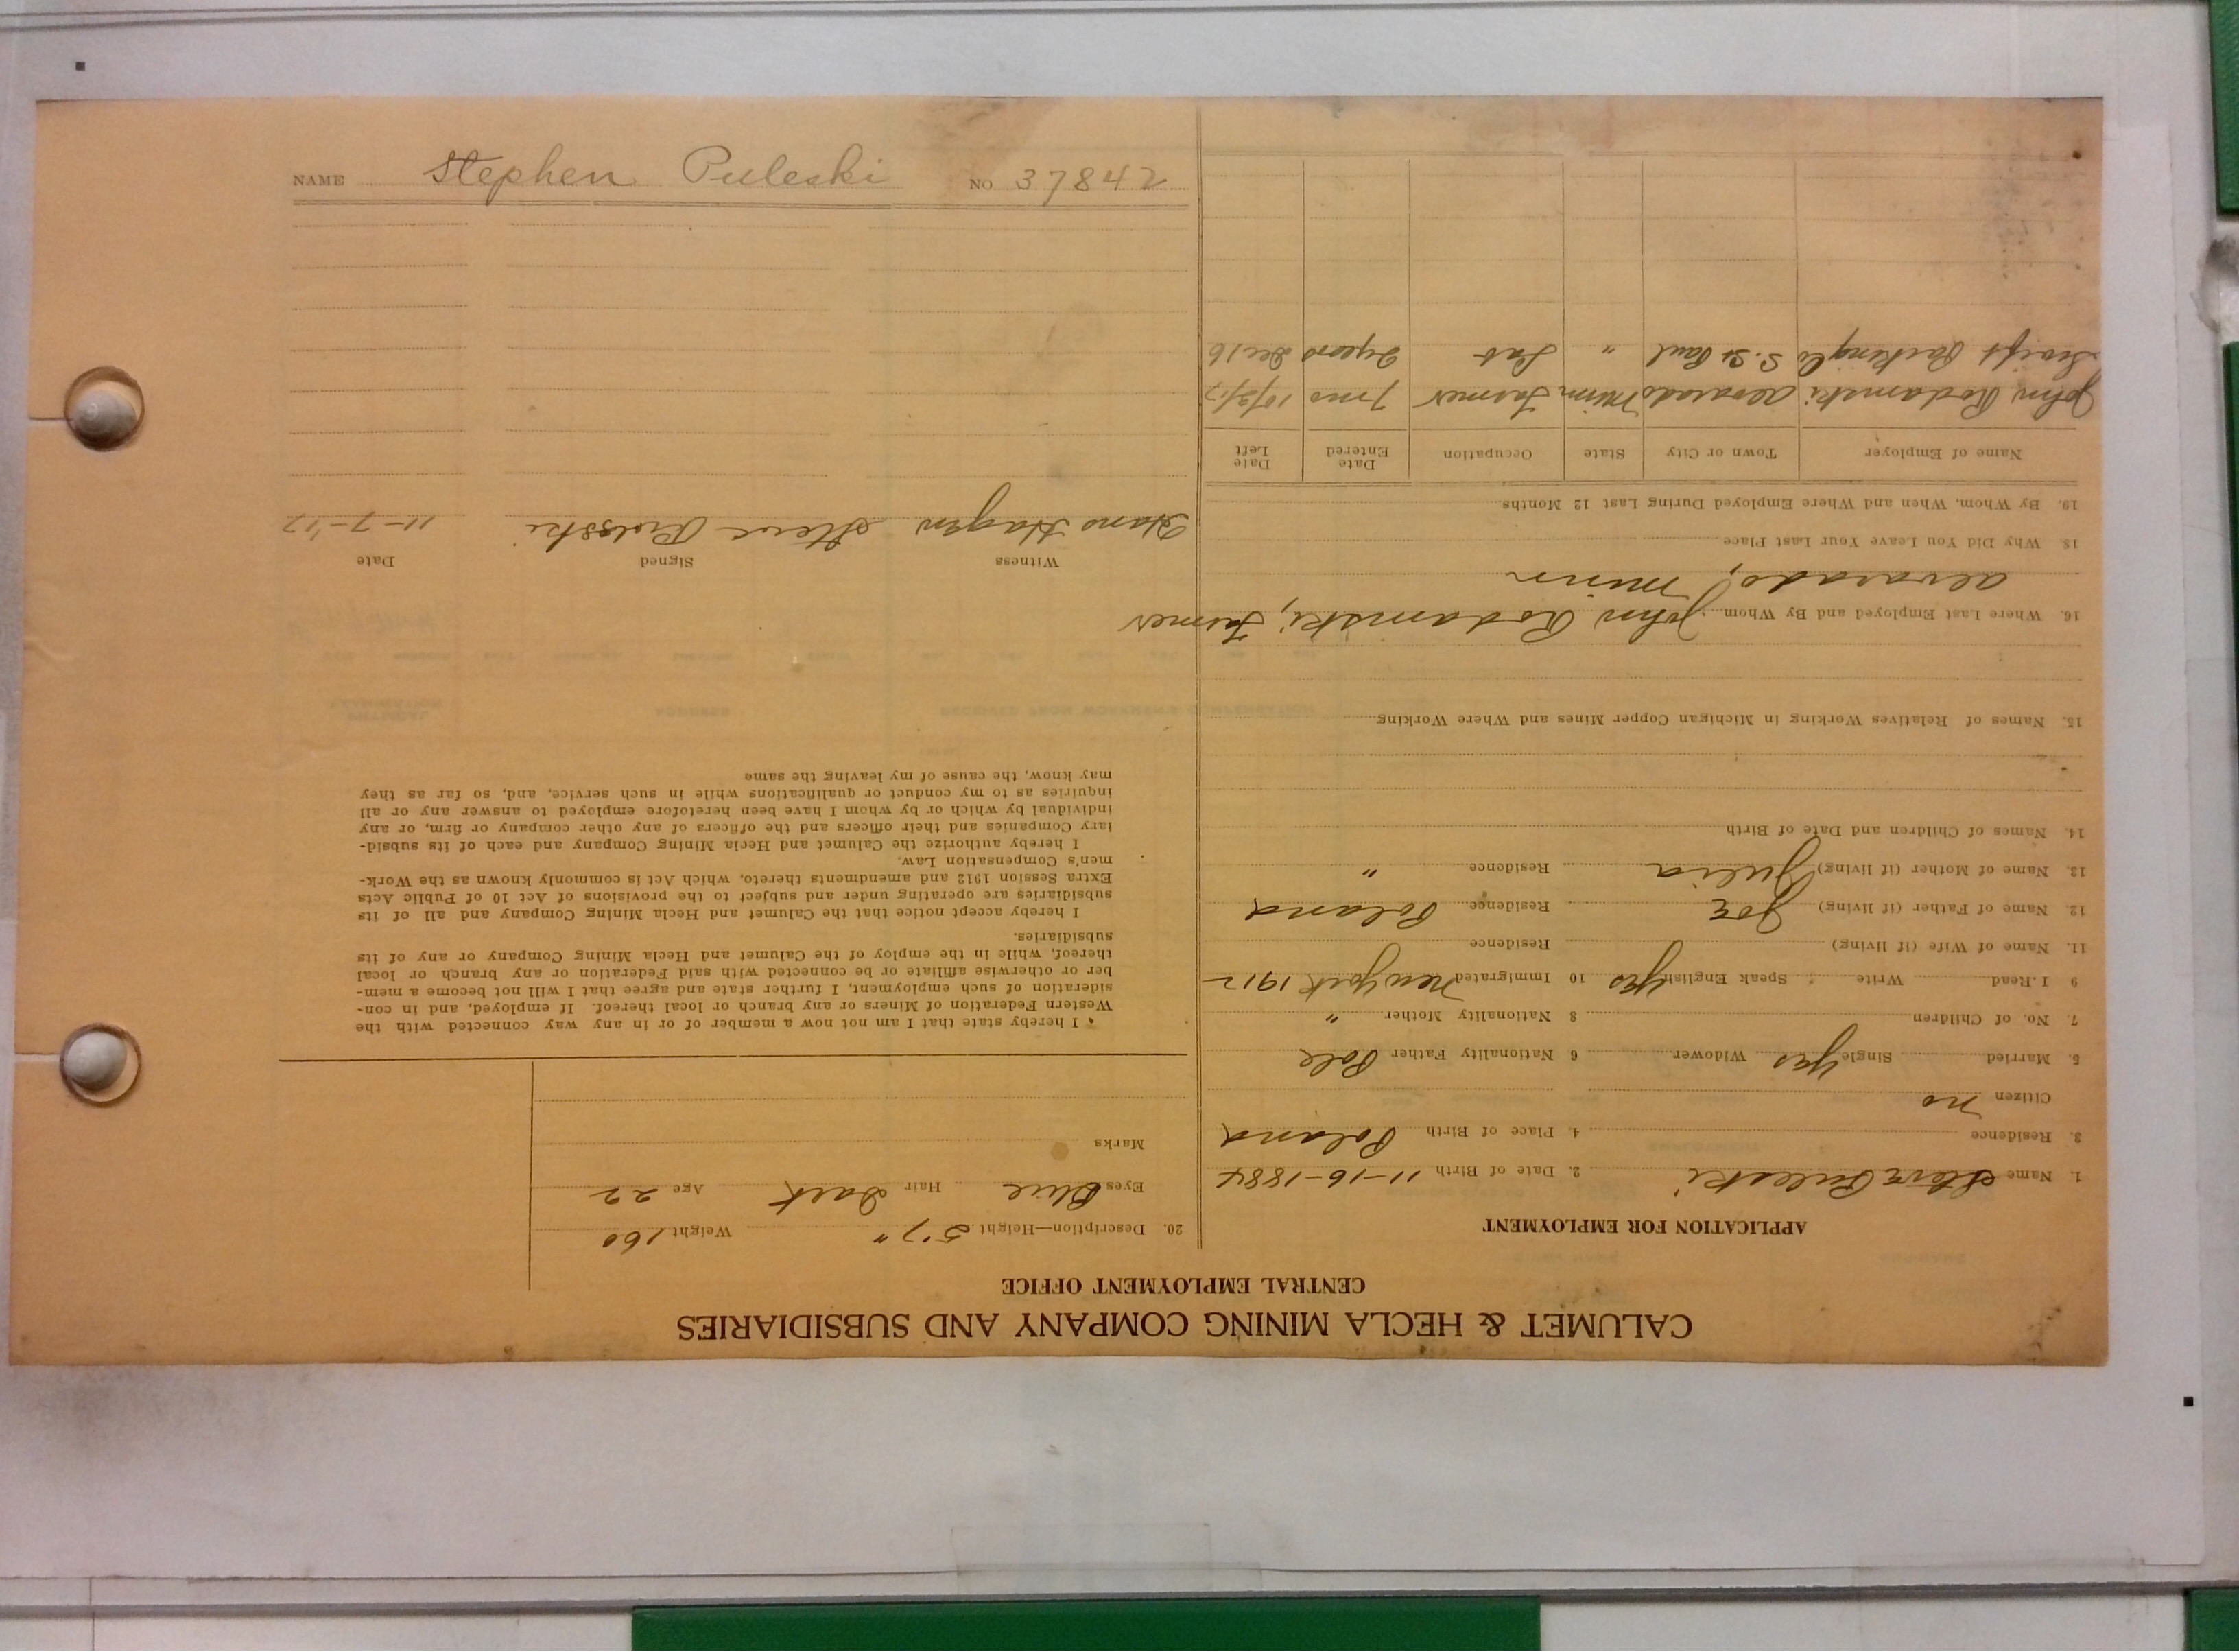 CALUMET & HECLA MINING COMPANY AND SUBSIDIARIES
CENTRAL EMPLOYMENT OFFICE
APPLICATION FOR EMPLOYMENT
1. Name Steve Puleski 2. Date of Birth 11-16-1884
3. Residence 4. Place of Birth Poland
Citizen no
5. Married Single yes Widower 6 Nationality Father Pole
7. No. of Children 8 Nationality Mother "
9 I.Read Write Speak English yes 10 Immigrated New York 1912
11. Name of Wife (if living) Residence
12. Name of Father (if living) Joe Residence Poland
13. Name of Mother (if living) Julia Residence "
14. Names of Children and Date of Birth
15. Names of Relatives Working in Michigan Copper Mines and Where Working
16. Where Last Employed and By Whom John Rodamski, Farmer
alvarado, Minn
18. Why Did You Leave Your Last Place
19. By Whom, When and Where Employed During Last 12 Months
Name of Employer Town or City State Occupation Date Entered Date Left
John Rodamski alvarado Minn Farmer 7 mo
Swift Packing Co S. St Paul " Lab 2 years Dec 16
20. Description—Height 5'7" Weight 160
Eyes Blue Hair Dark Age 22
Marks
I hereby state that I am not now a member of or in any way connected with the
Western Federation of Miners or any branch or local thereof. If employed, and in con-
sideration of such employment, I further state and agree that I will not become a mem-
ber or otherwise affiliate or be connected with said Federation or any branch or local
thereof, while in the employ of the Calumet and Hecla Mining Company or any of its
subsidiaries.
I hereby accept notice that the Calumet and Hecla Mining Company and all of its
subsidiaries are operating under and subject to the provisions of Act 10 of Public Acts
Extra Session 1912 and amendments thereto, which Act is commonly known as the Work-
men's Compensation Law.
I hereby authorize the Calumet and Hecla Mining Company and each of its subsid-
iary Companies and their officers and the officers of any other company or firm, or any
individual by which or by whom I have been heretofore employed to answer any or all
inquiries as to my conduct or qualifications while in such service, and, so far as they
may know, the cause of my leaving the same
Witness Signed Date
Hans Hagen Steve Puleski 11-7-'17
NAME Stephen Puleski NO 37842